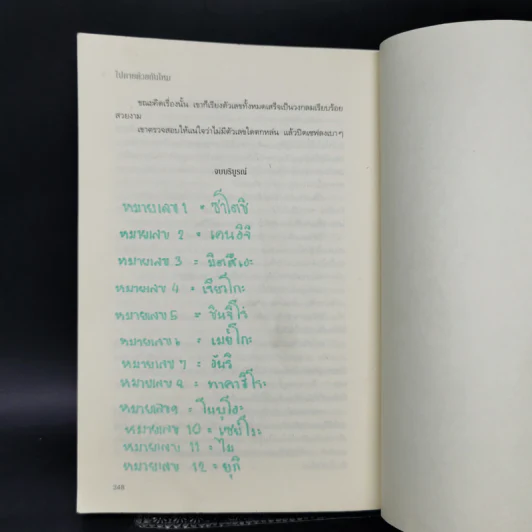 ไปตายด้วยกันไหม
ขณะคิดเรื่องนั้น เขาก็เรียงตัวเลขทั้งหมดเสร็จเป็นวงกลมเรียบร้อย
สวยงาม
เขาตรวจสอบให้แน่ใจว่าไม่มีตัวเลขใดตกหล่น แล้วปิดเซฟลงเบาๆ
จบบริบูรณ์
หมายเลข 1 = ซาโตชิ
หมายเลข 2 = เคนอิจิ
หมายเลข 3 = มิตสึเอะ
หมายเลข 4 = เรียวโกะ
หมายเลข 5 = ชินจิโร่
หมายเลข 6 = เมย์โกะ
หมายเลข 7 = อันริ
หมายเลข 8 = ทาคาฮิโระ
หมายเลข 9 = โนบุโอะ
หมายเลข 10 = เซย์โงะ
หมายเลข 11 = ไม
หมายเลข 12 = ยุกิ
348